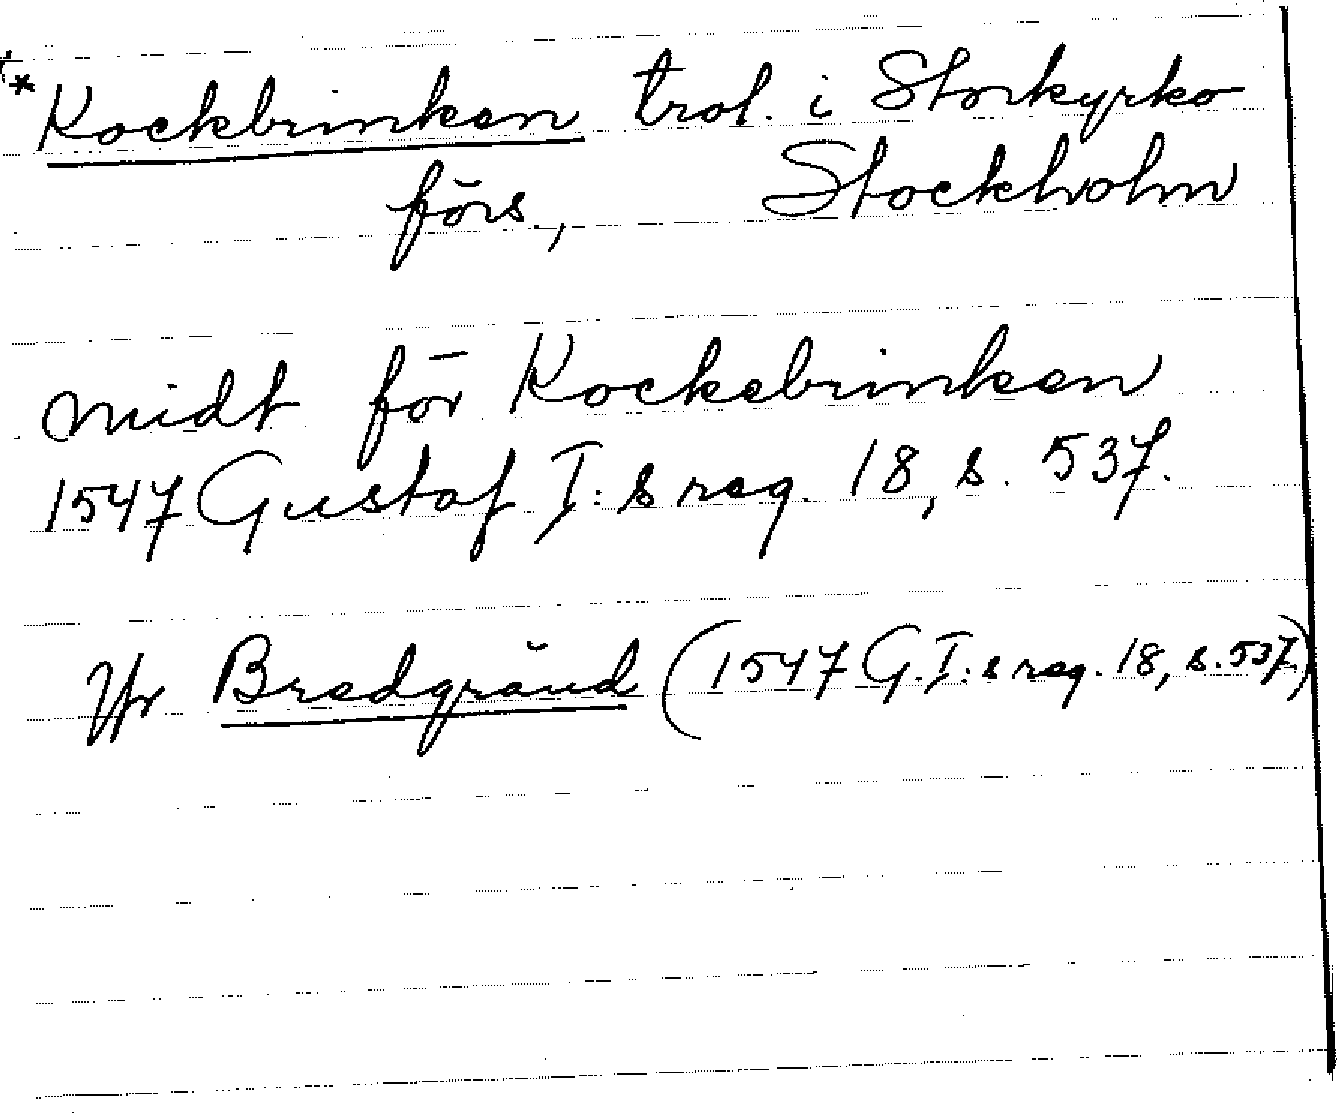 * Kockbrinken trol. i Storkyrko
förs, Stockholm
midt för Kockebrinken
1547 Gustaf I:s reg. 18, s. 537.
Jfr Bredgränd (1547 G.I:s reg. 18, s. 537)